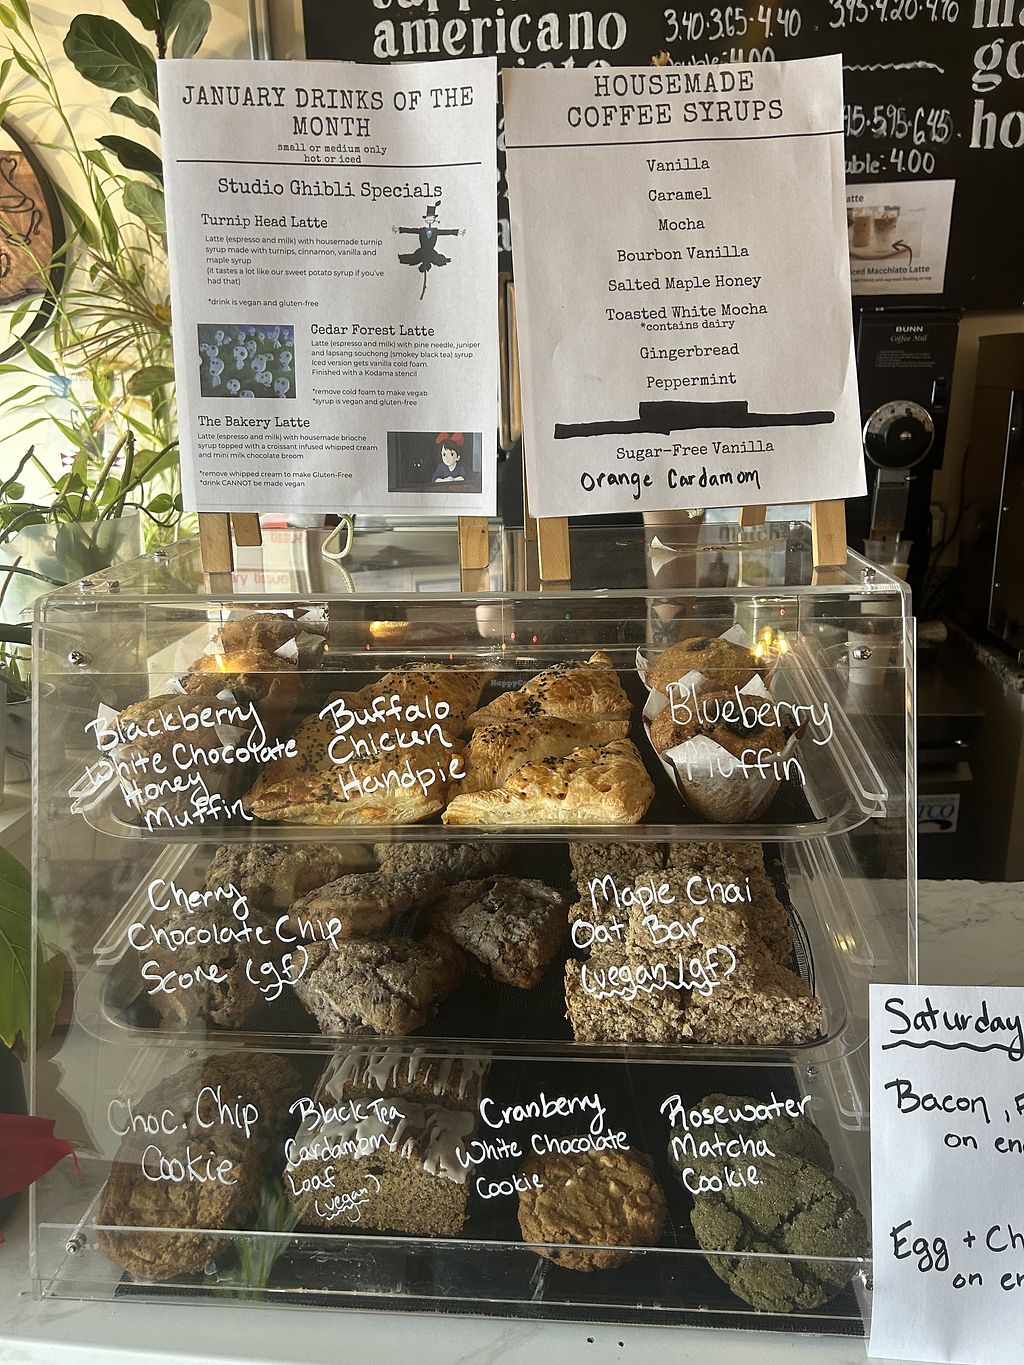 americano
3.40·3.65·4.40
3.95·4.20·4.70
double: 4.00
5.95·6.45
double: 4.00
JANUARY DRINKS OF THE
MONTH
small or medium only
hot or iced
Studio Ghibli Specials
Turnip Head Latte
Latte (espresso and milk) with housemade turnip
syrup made with turnips, cinnamon, vanilla and
maple syrup
(it tastes a lot like our sweet potato syrup if you've
had that)
*drink is vegan and gluten-free
Cedar Forest Latte
Latte (espresso and milk) with pine needle, juniper
and lapsang souchong (smokey black tea) syrup
Iced version gets vanilla cold foam.
Finished with a Kodama stencil
*remove cold foam to make vegab
*syrup is vegan and gluten-free
The Bakery Latte
Latte (espresso and milk) with housemade brioche
syrup topped with a croissant infused whipped cream
and mini milk chocolate broom
*remove whipped cream to make Gluten-Free
*drink CANNOT be made vegan
HOUSEMADE
COFFEE SYRUPS
Vanilla
Caramel
Mocha
Bourbon Vanilla
Salted Maple Honey
Toasted White Mocha
*contains dairy
Gingerbread
Peppermint
Sugar-Free Vanilla
Orange Cardamom
Iced Macchiato Latte
BUNN
Coffee Mill
tissue
Blackberry
White Chocolate
Honey
Muffin
Buffalo
Chicken
Handpie
Blueberry
Muffin
Cherry
Chocolate Chip
Scone (gf)
Maple Chai
Oat Bar
(vegan/gf)
Choc. Chip
Cookie
Black Tea
Cardamom
Loaf
(vegan)
Cranberry
White Chocolate
Cookie
Rosewater
Matcha
Cookie.
Saturday
Bacon,
on
Egg +
on